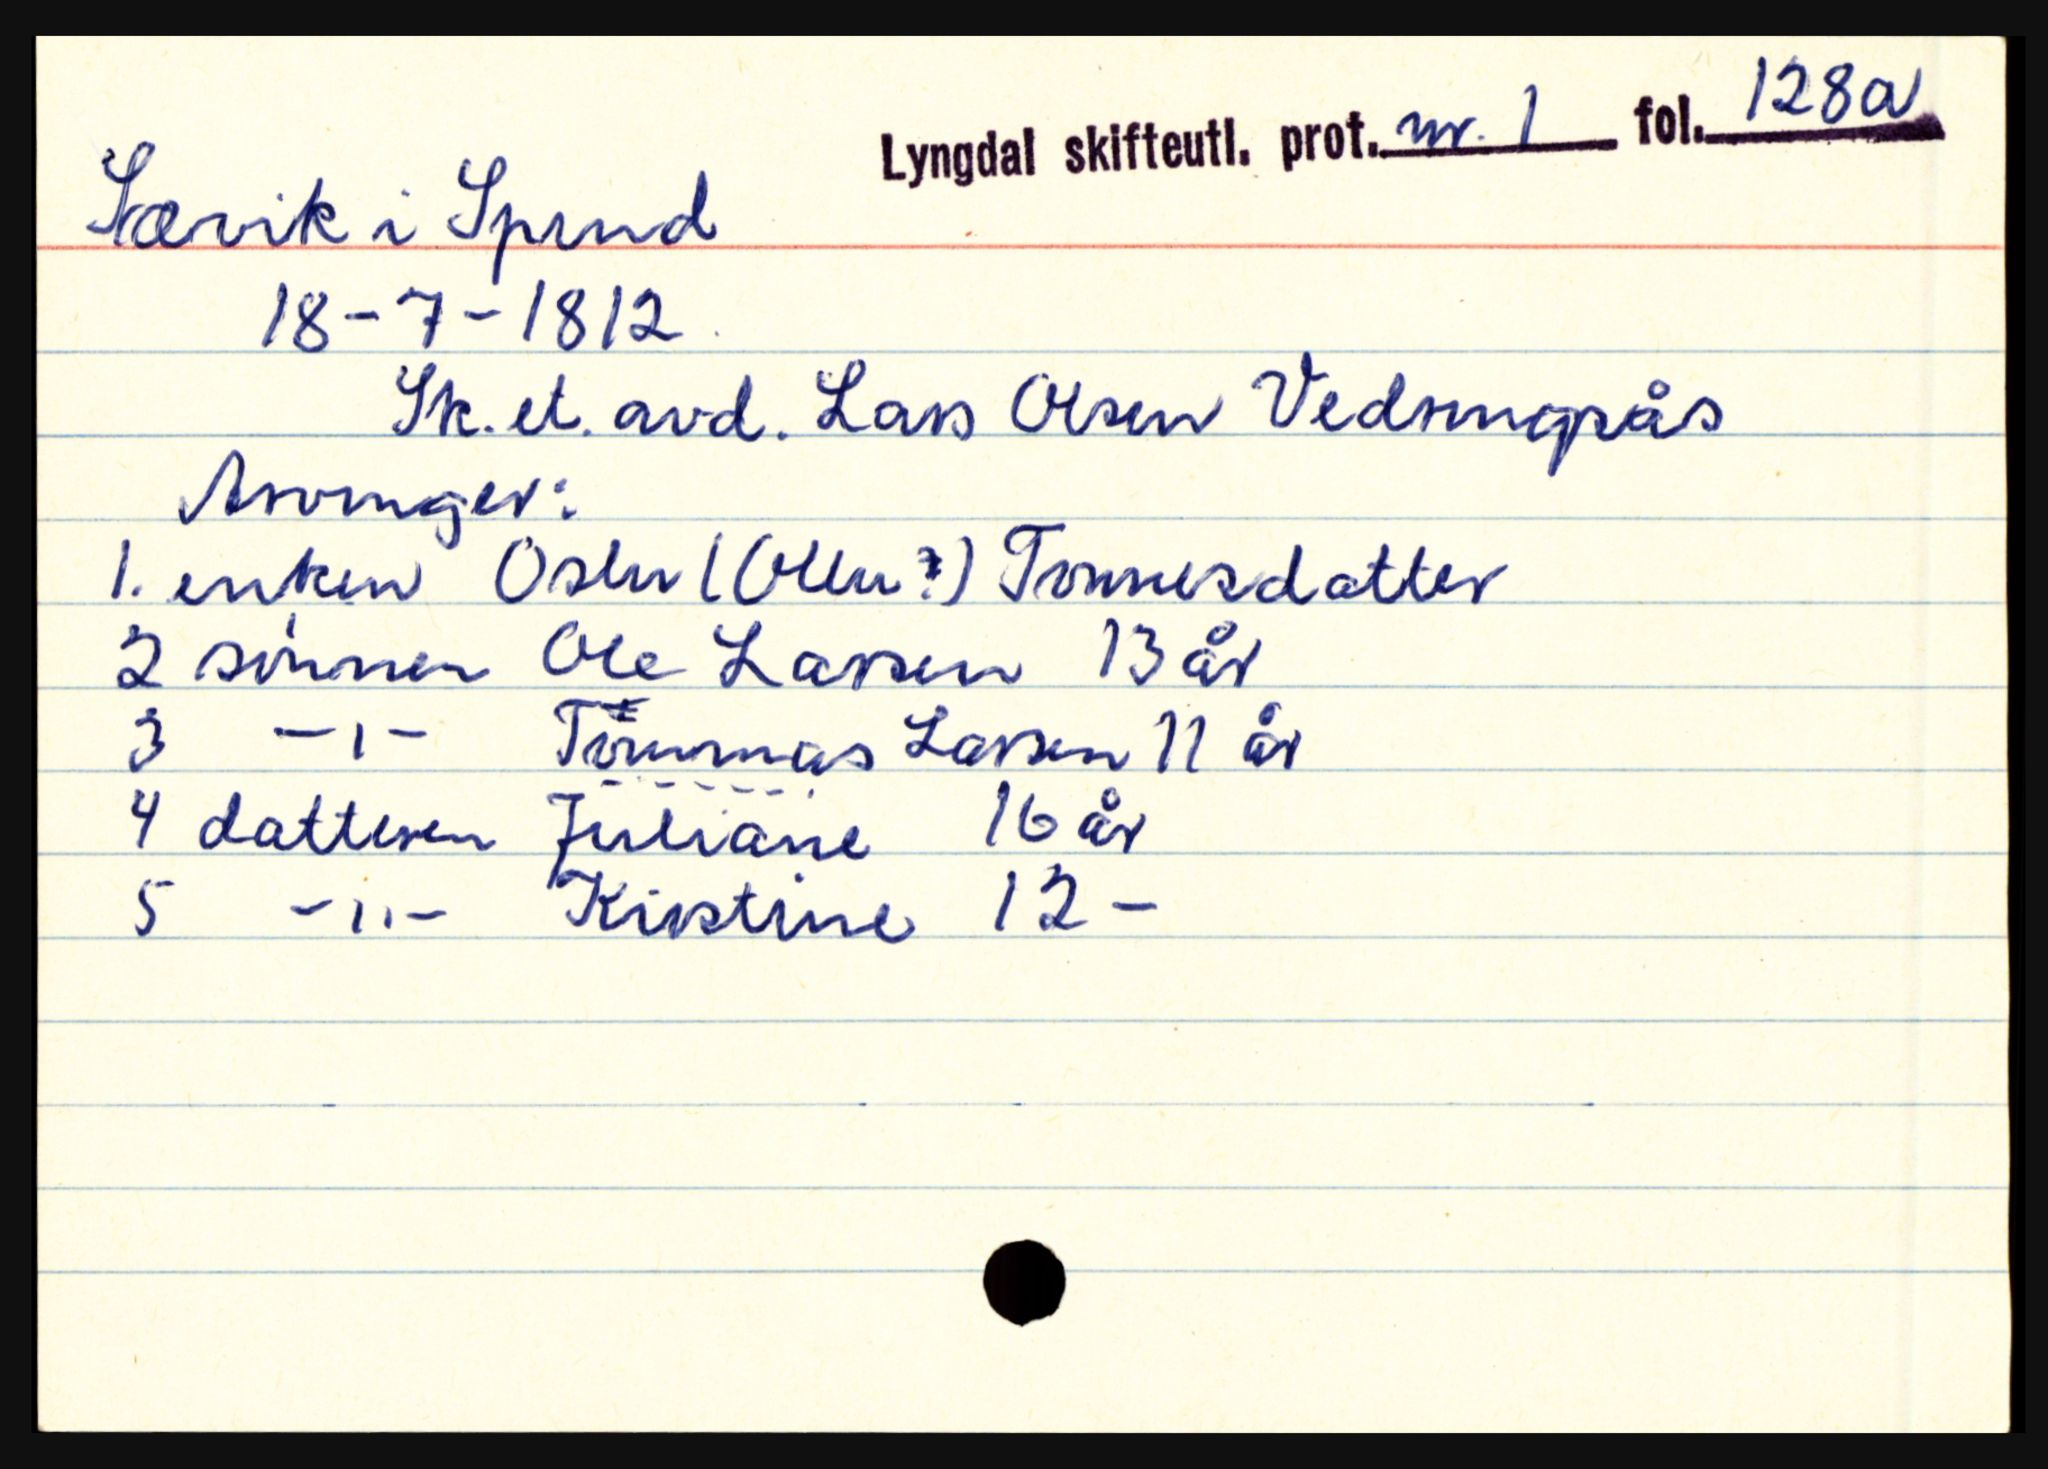 Lyngdal skifteutl. prot. nr. 1 fol. 128a
Sævik i Spind
18-7-1812
Sk. et. avd. Lars Olsen
Arvinger:
1. enken Oslu (Ollu?) Tønnesdatter
2 sønnen Ole Larsen 13 år
3 -"- Tommas Larsen 11 år
4 datteren Juliane 16 år
5 -"- Kirstine 12 -